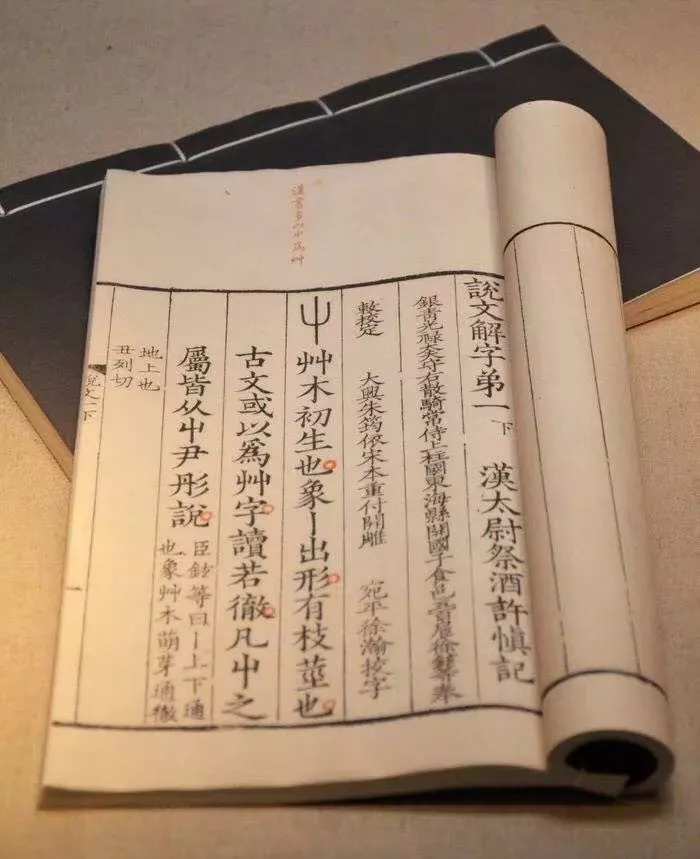 漢書多以屮爲艸
說文解字弟一下 漢太尉祭酒許愼記
銀青光祿大夫守右散騎常侍上柱國東海縣開國子食邑五百戶臣徐鉉等奉
敕挍定 大興朱筠依宋本重付開雕 宛平徐瀚挍字
屮艸木初生也象丨出形有枝莖也
古文或以爲艸字讀若徹凡屮之
屬皆从屮尹彤說
臣鉉等曰丨上下通
也象艸木萌芽通徹
地上也
丑列切
說文一下